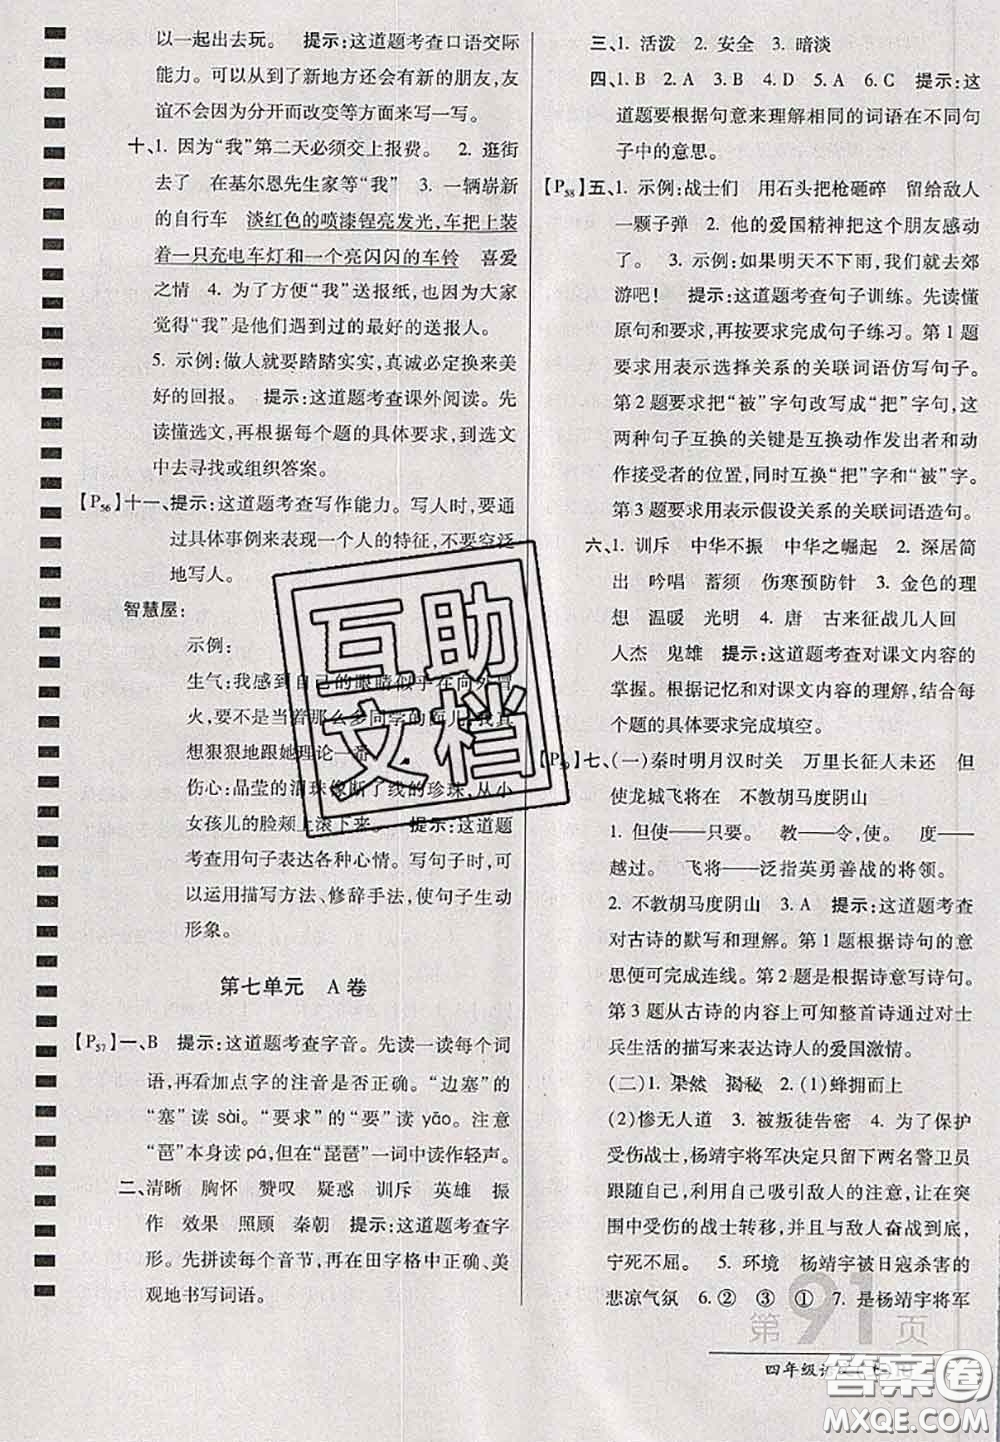 以一起出去玩。　提示:这道题考查口语交际
能力。可以从到了新地方还会有新的朋友,友
谊不会因为分开而改变等方面来写一写。
十、1. 因为“我”第二天必须交上报费。　2. 逛街
去了　在基尔恩先生家等“我”　3. 一辆崭新
的自行车　淡红色的喷漆锃亮发光,车把上装
着一只充电车灯和一个亮闪闪的车铃　喜爱
之情　4. 为了方便“我”送报纸,也因为大家
觉得“我”是他们遇到过的最好的送报人。
5. 示例:做人就要踏踏实实,真诚必定换来美
好的回报。　提示:这道题考查课外阅读。先
读懂选文,再根据每个题的具体要求,到选文
中去寻找或组织答案。
【P56】十一、提示:这道题考查写作能力。写人时,要
通过具体事例来表现一个人的特征,不要空泛
地写人。
智慧屋:
示例:
生气:我感到自己的眼睛似乎在向外冒
火,要不是当着那么多同学的面儿,我真
想狠狠地跟她理论一番。
伤心:晶莹的泪珠像断了线的珍珠,从小
女孩儿的脸颊上滚下来。　提示:这道题
考查用句子表达各种心情。写句子时,可
以运用描写方法、修辞手法,使句子生动
形象。
第七单元　A卷
【P57】一、B　提示:这道题考查字音。先读一读每个词
语,再看加点字的注音是否正确。“边塞”的
“塞”读 sài。“要求”的“要”读 yāo。注意
“琶”本身读 pá,但在“琵琶”一词中读作轻声。
二、清晰　胸怀　赞叹　疑惑　训斥　英雄　振
作　效果　照顾　秦朝　提示:这道题考查字
形。先拼读每个音节,再在田字格中正确、美
观地书写词语。
三、1. 活泼　2. 安全　3. 暗淡
四、1. B　2. A　3. B　4. D　5. A　6. C　提示:这
道题要根据句意来理解相同的词语在不同句
子中的意思。
【P58】五、1. 示例:战士们　用石头把枪砸碎　留给敌人
一颗子弹　2. 他的爱国精神把这个朋友感动
了。　3. 示例:如果明天不下雨,我们就去郊
游吧!　提示:这道题考查句子训练。先读懂
原句和要求,再按要求完成句子练习。第 1 题
要求用表示选择关系的关联词语仿写句子。
第 2 题要求把“被”字句改写成“把”字句,这
两种句子互换的关键是互换动作发出者和动
作接受者的位置,同时互换“把”字和“被”字。
第 3 题要求用表示假设关系的关联词语造句。
六、1. 训斥　中华不振　中华之崛起　2. 深居简
出　吟唱　蓄须　伤寒预防针　3. 金色的理
想　温暖　光明　4. 唐　古来征战几人回
人杰　鬼雄　提示:这道题考查对课文内容的
掌握。根据记忆和对课文内容的理解,结合每
个题的具体要求完成填空。
七、(一)秦时明月汉时关　万里长征人未还　但
使龙城飞将在　不教胡马度阴山
1. 但使——只要。　教——令,使。　度——
越过。　飞将——泛指英勇善战的将领。
2. 不教胡马度阴山　3. A　提示:这道题考查
对古诗的默写和理解。第 1 题根据诗句的意
思便可完成连线。第 2 题是根据诗意写诗句。
第 3 题从古诗的内容中可知整首诗通过对士
兵生活的描写来表达诗人的爱国激情。
(二)1. 果然　揭秘　2. (1)蜂拥而上
(2)惨无人道　3. 被叛徒告密　4. 为了保护
受伤战士,杨靖宇将军决定只留下两名警卫员
跟随自己,利用自己吸引敌人的注意,让在突
围中受伤的战士转移,并且与敌人奋战到底,
宁死不屈。　5. 环境　杨靖宇被日寇杀害的
悲凉气氛　6. ②　③　①　7. 是杨靖宇将军
第91页
四年级
互助
文档
答案圈
MXQE.COM